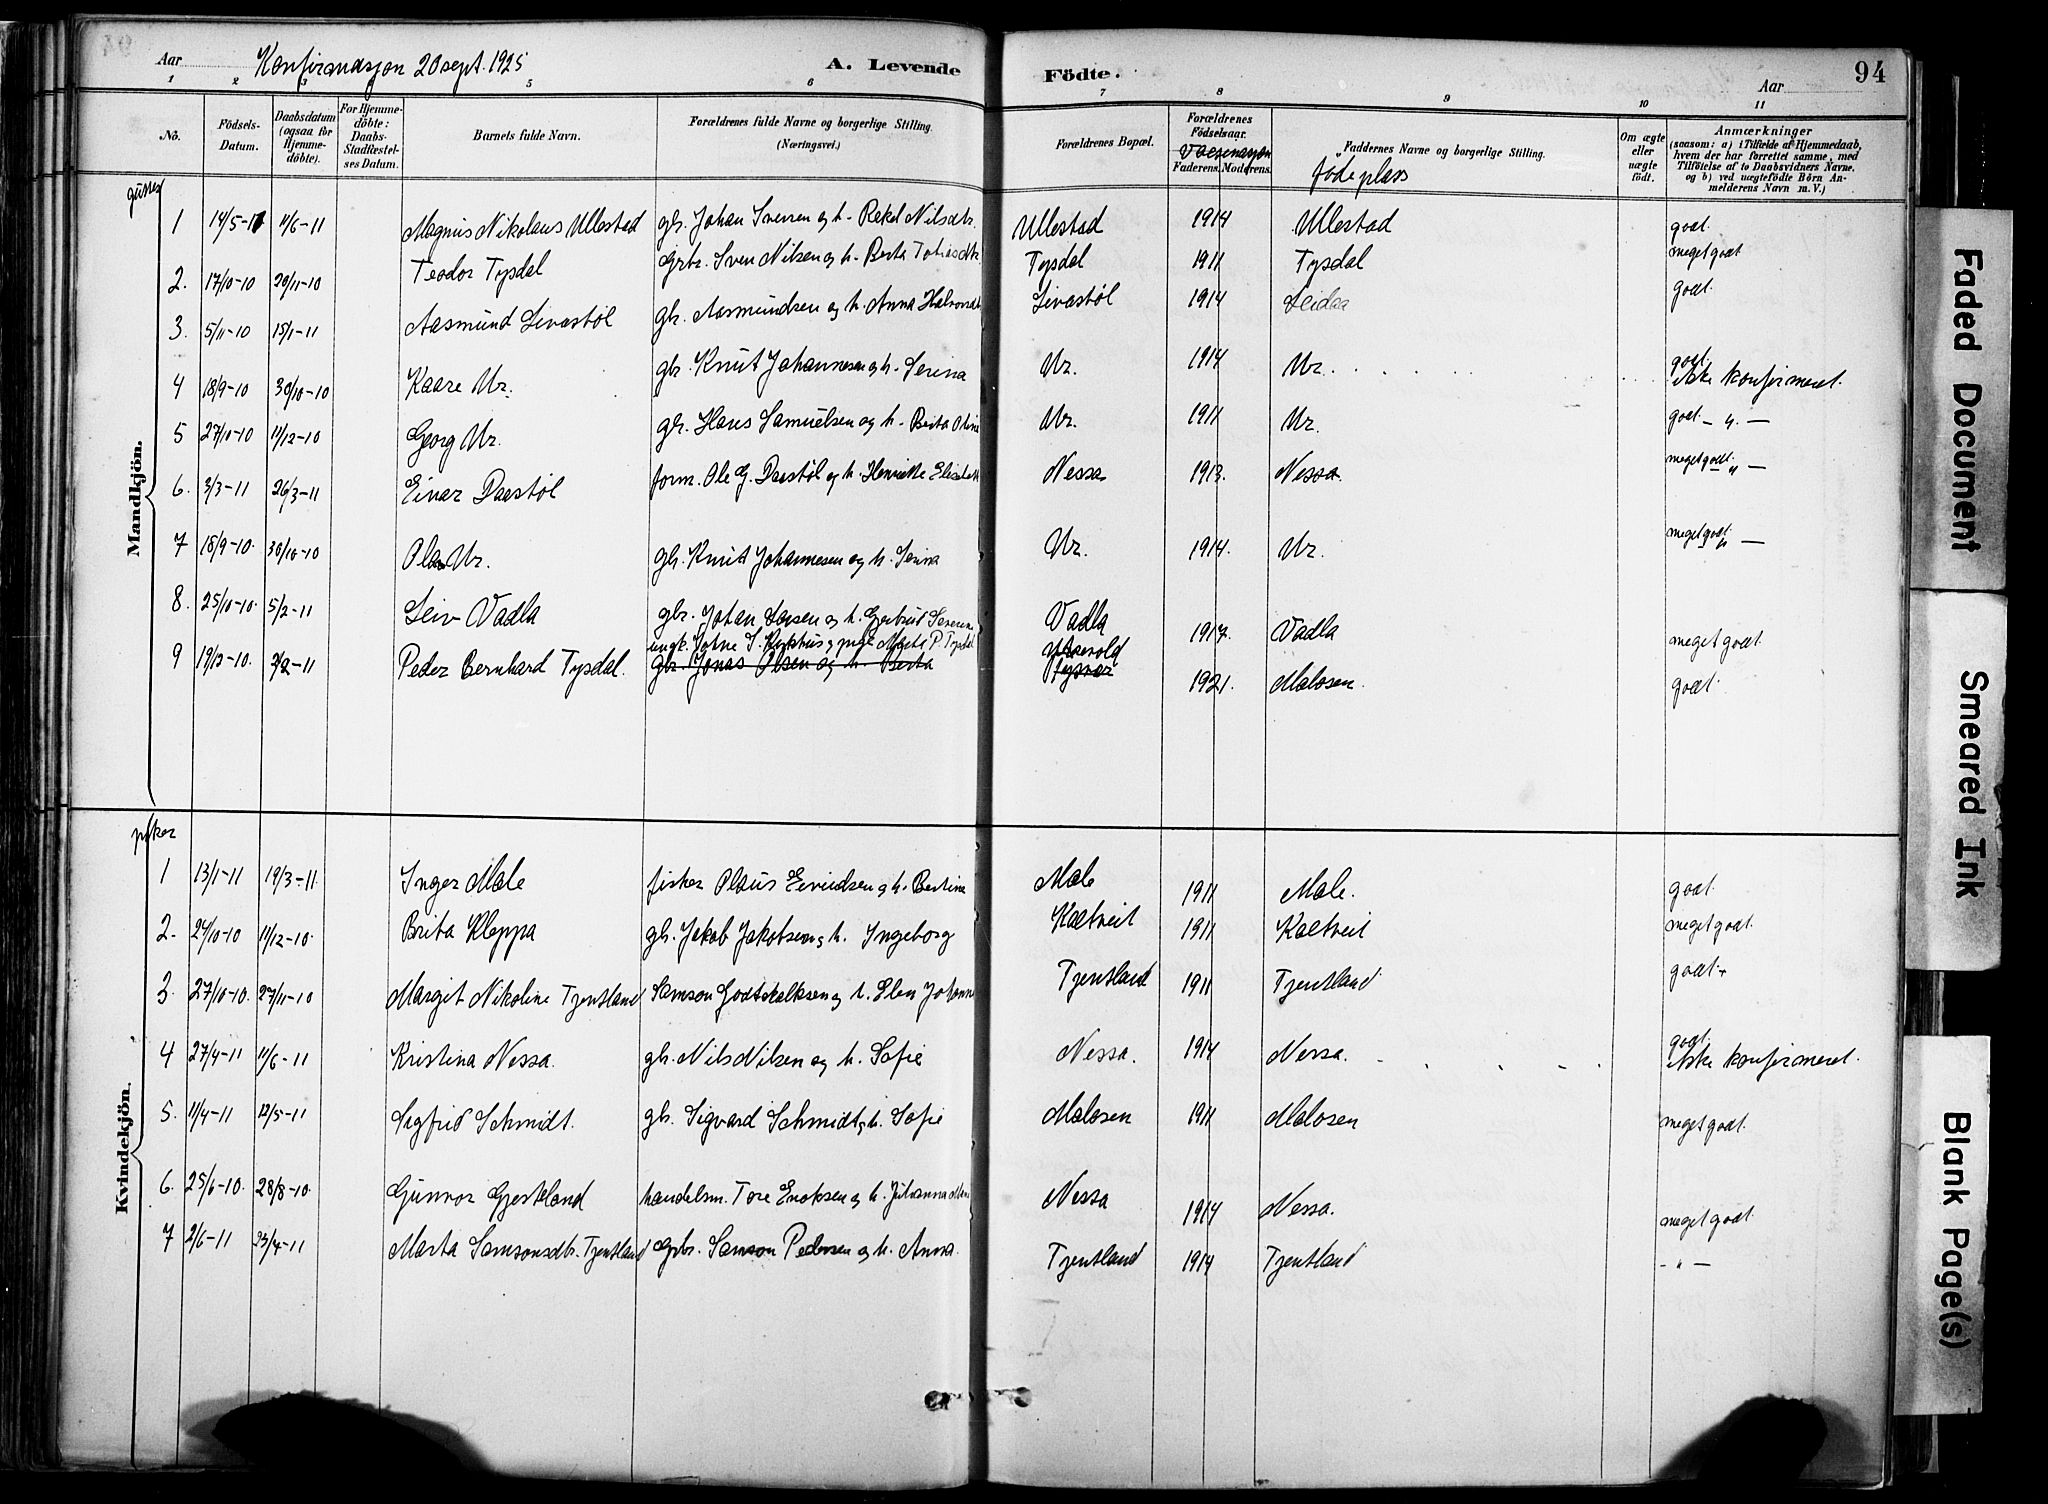 Aar Konfirmasjon 20 sept. 1925 A. Levende Födte. Aar 94
1 2 3 5 6 7 8 9 10 11
No. Födsels-Datum. Daabsdatum (ogsaa for Hjemme-döbte). For Hjemme-döbte: Daabs-Stadfæstel-ses Datum. Barnets fulde Navn. Forældrenes fulde Navne og borgerlige Stilling. (Næringsvei.) Forældrenes Bopæl. Forældrenes Födselsaar. Vacsinasjon Faderens. Moderens. Faddernes Navne og borgerlige Stilling. födeplass Om ægte eller uægte födt. Anmærkninger (saasom: a) i Tilfælde af Hjemmedaab, hvem der har forrettet samme, med Tilföielse af to Daabsvidners Navne. og b) ved uægtefödte Börn An-melderens Navn m. V.)
Mandkjön. gutter
1 14/5-11 11/6-11 Magnus Nikolaus Ullestad gbr. Johan Iversen og h. Rakel Nilsdtr. Ullestad 1914 Ullestad godt.
2. 17/10-10 20/11-10 Teodor Tysdal Grbr. Sven Nilsen og h. Berta Tobiasdtr Tysdal 1911 Tysdal meget godt
3. 5/11-10 15/1-11 Aasmund Livastöl gbr. Aasmundsen og h. Anna Halvorsdt Livastöl 1914 godt.
4 18/9-10 30/10-10 Kaare Ur. gbr. Knut Johannesen og h. Serina Ur. 1914 Ur. godt. ikke konfirmeret.
5 27/10-10 11/12-10 Georg Ur. gbr. Hans Samuelsen og h. Berta Ur. 1911 Ur. godt - " -
6. 3/3-11 26/3-11 Einar Daestöl form. Ole G. Daestöl og h. Henriette Elisabeth Nessa 1913. Nessa. meget godt. - " -
7 18/9-10. 30/10-10 Ola Ur. gbr. Knut Johannesen og h. Serina Ur. 1914. Ur. meget godt - " -
8. 25/10-10. 5/2-11 Leiv Vadla gbr. Johan Larsen og h. Gertrud Severine Vadla 1917. Vadla meget godt.
9 19/12-10. 2/2-11 Peder Bernhard Tysdal. ungk. Johne P. Tysdal gbr. Jonas Olsen og h. Berta Tysvær 1921. Malosen. godt.
Kvindekjön. piker
1 13/1-11 19/3-11 Inger Male fisker Olaus Eivindsen og h. Bertina Male 1911 Male. godt.
2. 24/10-10 11/12-10. Brita Kleppa gbr. Jakob Jakobsen og h. Ingeborg Kaltveit 1911 Kaltveit meget godt.
3. 27/10-10. 27/11-10 Margit Nikoline Tjentland Samson Godtskalksen og h. Elen Johanne Tjentland 1911 Tjentland godt +
4 27/4-11 11/6-11 Kristina Nessa. gbr. Nils Nilsen og h. Sofie Nessa. 1914 Nessa. godt. ikke konfirmeret.
5. 11/4-11 12/5-11 Sigfrid Schmidt. gbr. Sigvard Schmidt og h. Sofie Malosen 1911 Malosen meget godt.
6. 25/6-10. 28/8-10. Gunvor Gjestland handelsm. Tore Enoksen og h. Johanna Nessa 1914 Nessa. meget godt.
7 2/6-11 23/4-11 Marta Samsonsdtr. Tjentland Grbr. Samson Pedersen og h. Anna. Tjentland 1914 Tjentland - " -
Faded Document
Smeared Ink
Blank Page(s)